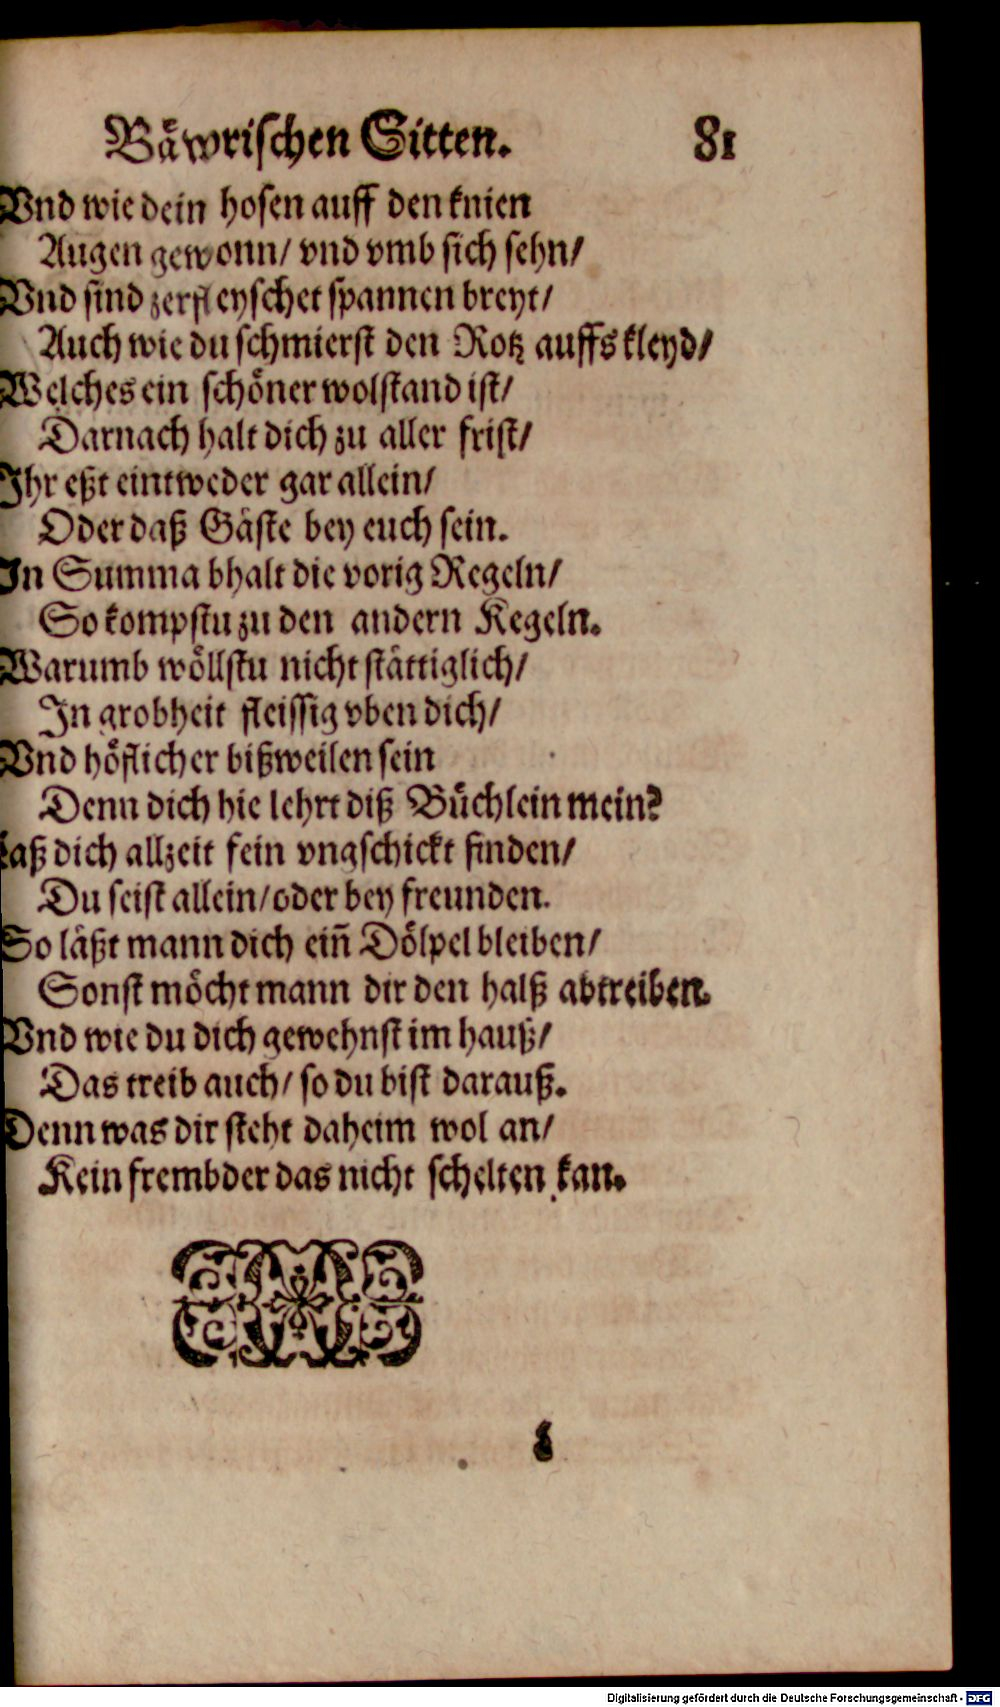 Bäwrischen Sitten. 81
Vnd wie dein hosen auff den knien
Augen gewonn/ vnd vmb sich sehn/
Vnd sind zerfleyschet spannen breyt/
Auch wie du schmierst den Rotz auffs kleyd/
Welches ein schöner wolstand ist/
Darnach halt dich zu aller frist/
Ihr eßt eintweder gar allein/
Oder daß Gäste bey euch sein.
In Summa bhalt die vorig Regeln/
So kompstu zu den andern Kegeln.
Warumb wöllstu nicht stättiglich/
In grobheit fleissig vben dich/
Vnd höflicher bißweilen sein
Denn dich hie lehrt diß Büchlein mein?
Laß dich allzeit fein vngschickt finden/
Du seist allein/ oder bey freunden.
So läßt mann dich ein̄ Dölpel bleiben/
Sonst möcht mann dir den halß abtreiben.
Vnd wie du dich gewehnst im hauß/
Das treib auch/ so du bist darauß.
Denn was dir steht daheim wol an/
Kein frembder das nicht schelten kan.
Digitalisierung gefördert durch die Deutsche Forschungsgemeinschaft - DFG